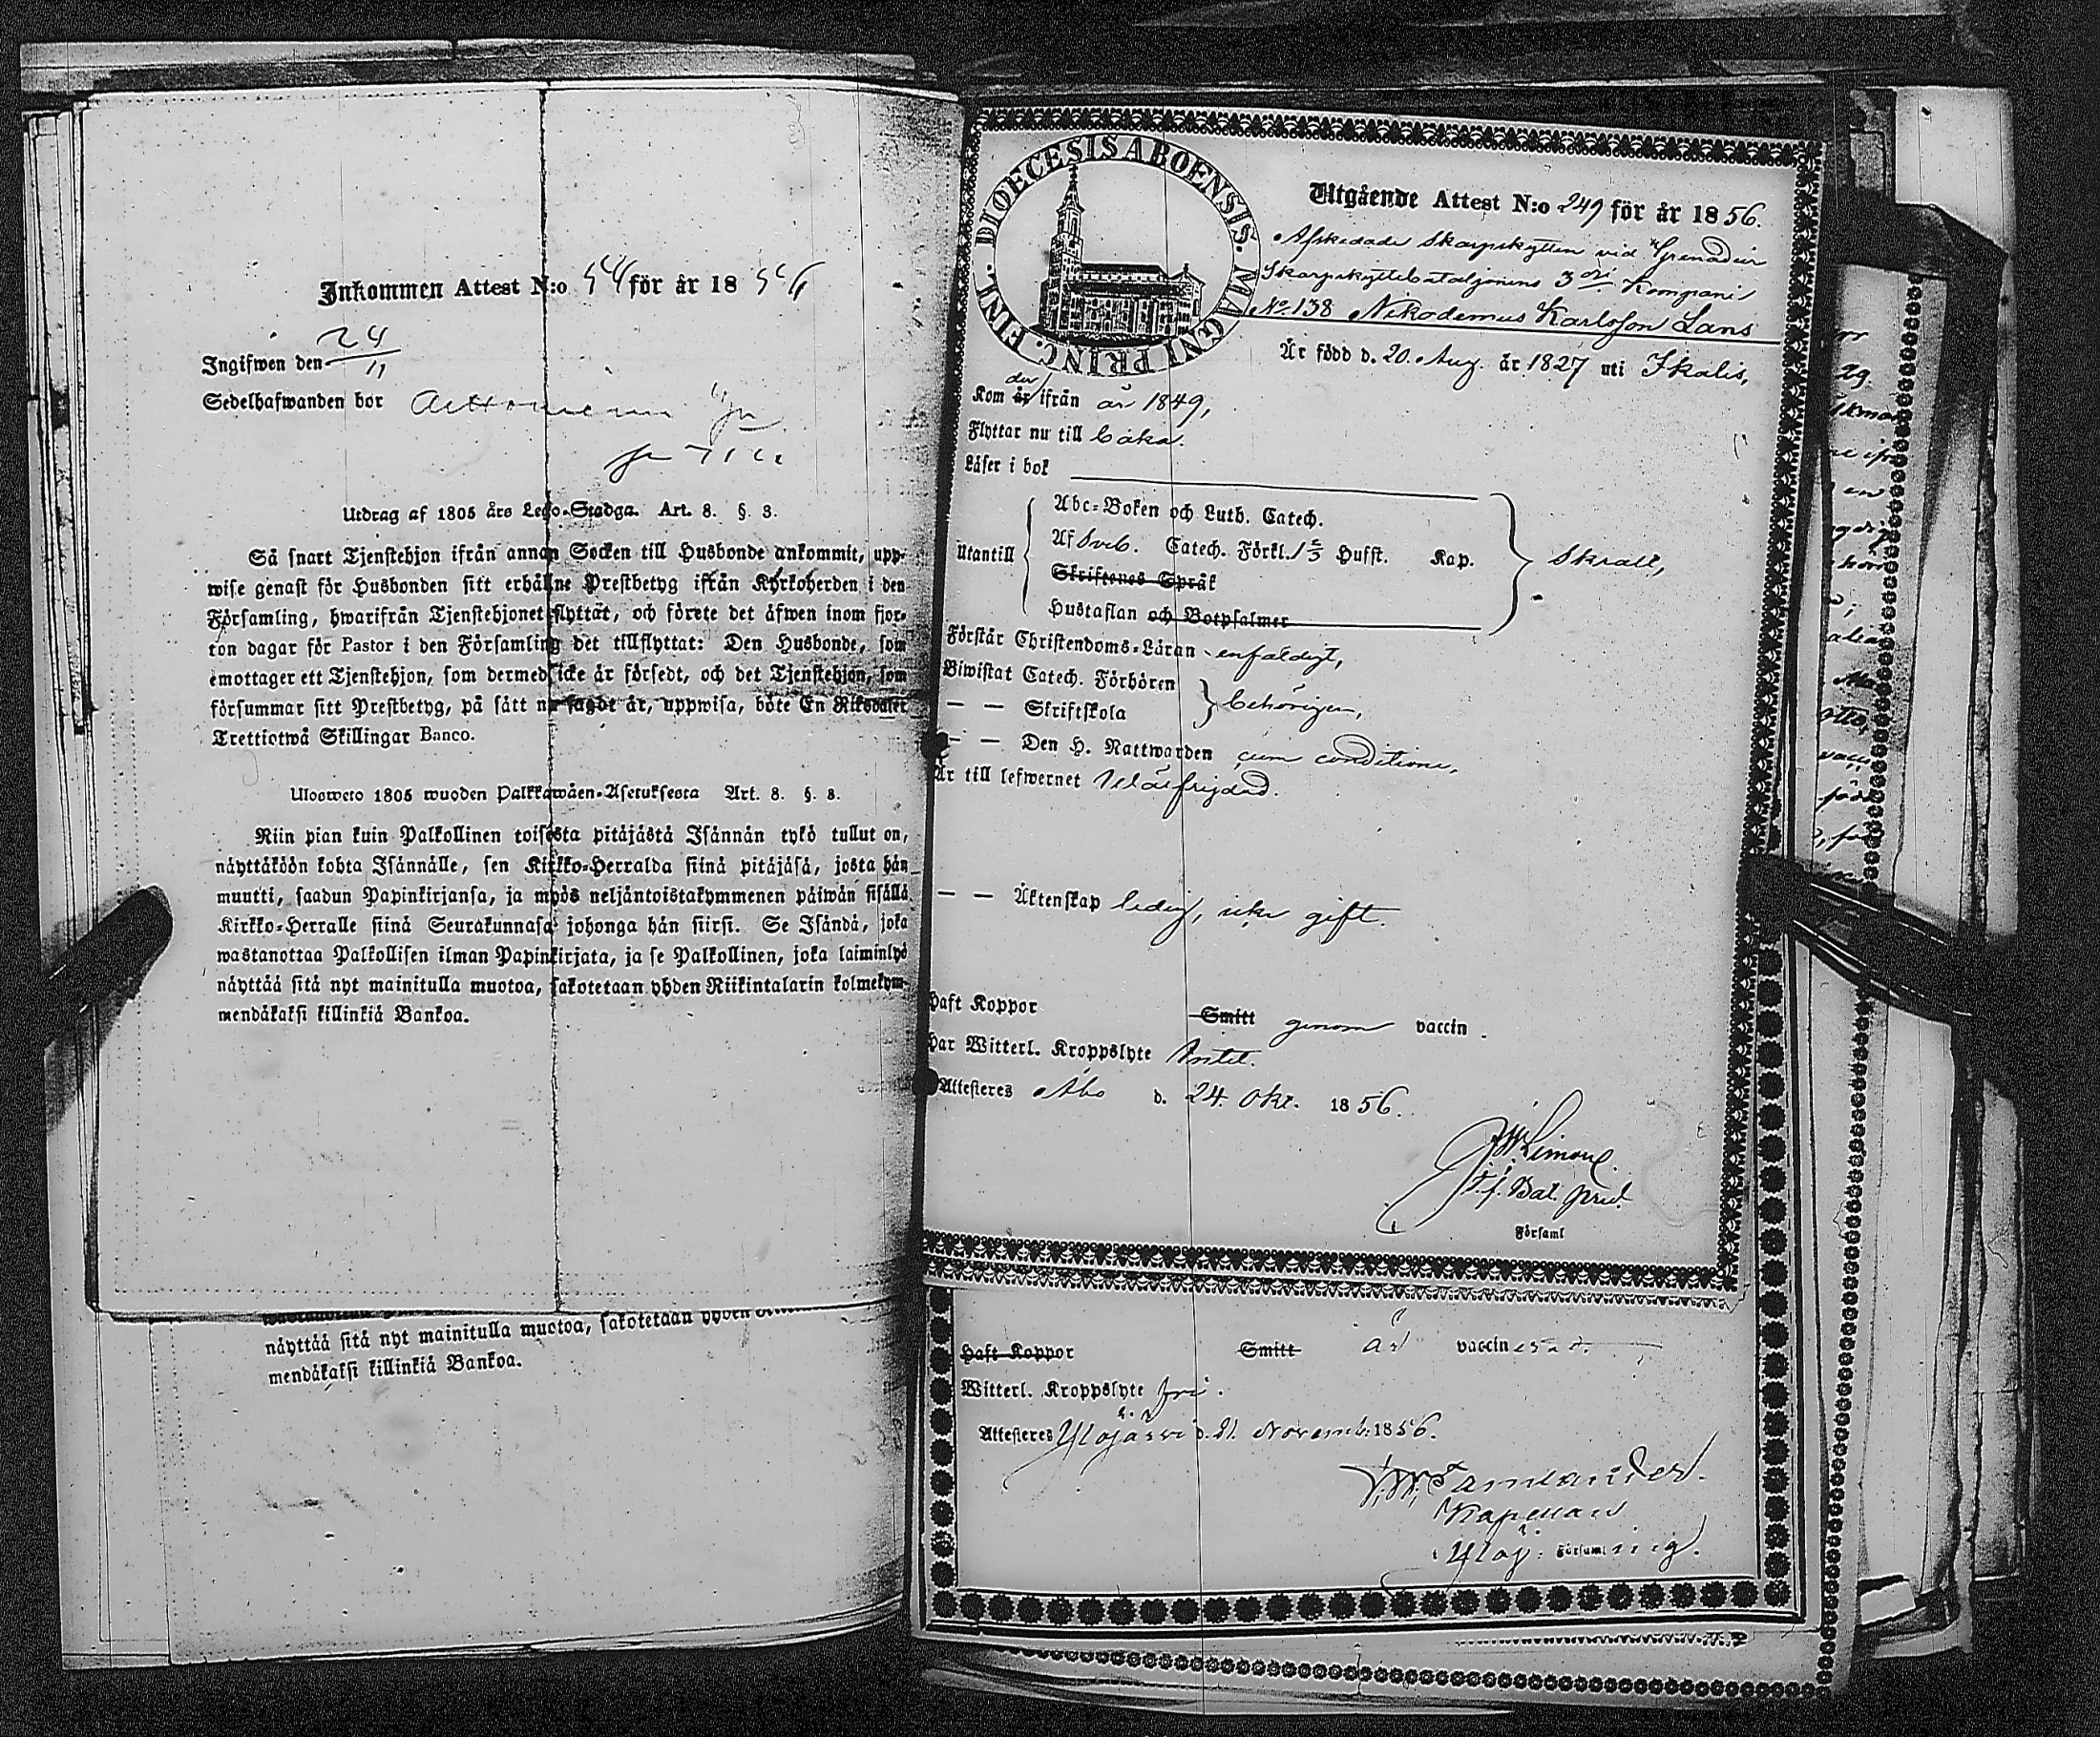 Inkommen Attest N:o 54 för år 1856
Ingifwen den 24/11
Sedelhafwanden bor
Utdrag af 1805 års Lego-Stadga. Art. 8. §. 3.
Så snart Tjenstehjon ifrån annan Socken till Husbonde ankommit, upp-
wise genast för Husbonden sitt erhållne Prestbetyg ifrån Kyrkoherden i den
Församling, hwarifrån Tjenstehjonet flyttat, och förete det äfwen inom fjor-
ton dagar för Pastor i den Församling det tillflyttat: Den Husbonde, som
emottager ett Tjenstehjon, som dermed icke är försedt, och det Tjenstehjon, som
försummar sitt Prestbetyg, på sätt nu sagdt är, uppwisa, böte En Riksdaler
Trettiotwå Skillingar Banco.
Ulosweto 1805 wuoden Palkkawäen-Asetuksesta Art. 8. §. 3.
Niin pian kuin Palkollinen toisesta pitäjästä Isännän tykö tullut on,
näyttäköön kohta Isännälle, sen Kirkko-Herralda siinä pitäjäsä, josta hän
muutti, saadun Papinkirjansa, ja myös neljäntoistakymmenen päiwän sisällä
Kirkko-Herralle siinä Seurakunnasa johonga hän siirsi. Se Isändä, joka
wastanottaa Palkollisen ilman Papinkirjata, ja se Palkollinen, joka laiminlyö
näyttää sitä nyt mainitulla muotoa, sakotetaan yhden Riikintalarin kolmekym-
mendäkaksi killinkiä Bankoa.
näyttää sitä nyt mainitulla muotoa, sakotetaan yhden
mendäkaksi killinkiä Bankoa.
DIOECESIS ABOENSIS. MAGNI PRINC. FINL.
Utgående Attest N:o 249 för år 1856.
Afskedade Skarpskytten vid Grenadier
Skarpskyttebataljonens 3die Kompani
No. 138 Nikodemus Karlsson Lans
Är född d. 20. Aug. år 1827 uti Ikalis,
Kom år ifrån år 1849,
Flyttar nu till
Läser i bok
Utantill
Abc-Boken och Luth. Catech.
Af Sveb. Catech. Förkl. 1 2/3 Hufst. Kap.
Skriftenes Språk
Hustaflan och Botpsalmer
Skralt,
Förstår Christendoms-Läran enfaldigt,
Biwistat Catech. Förhören
— — Skriftskola
behörigen,
— — Den H. Nattwarden cum conditione,
Är till lefwernet oklanderlig
— — Äktenskap ledig, icke gift.
Haft Koppor Smitt genom vaccin.
Har Witterl. Kroppslyte Intet.
Attesteres Åbo d. 24. Okt. 1856.
Församl
Haft Koppor Smitt är vaccinerad.
Witterl. Kroppslyte fri.
Attesteres Ylöjärvi d. 21. Novemb. 1856.
Kapellan
i Ylöj. Församling.